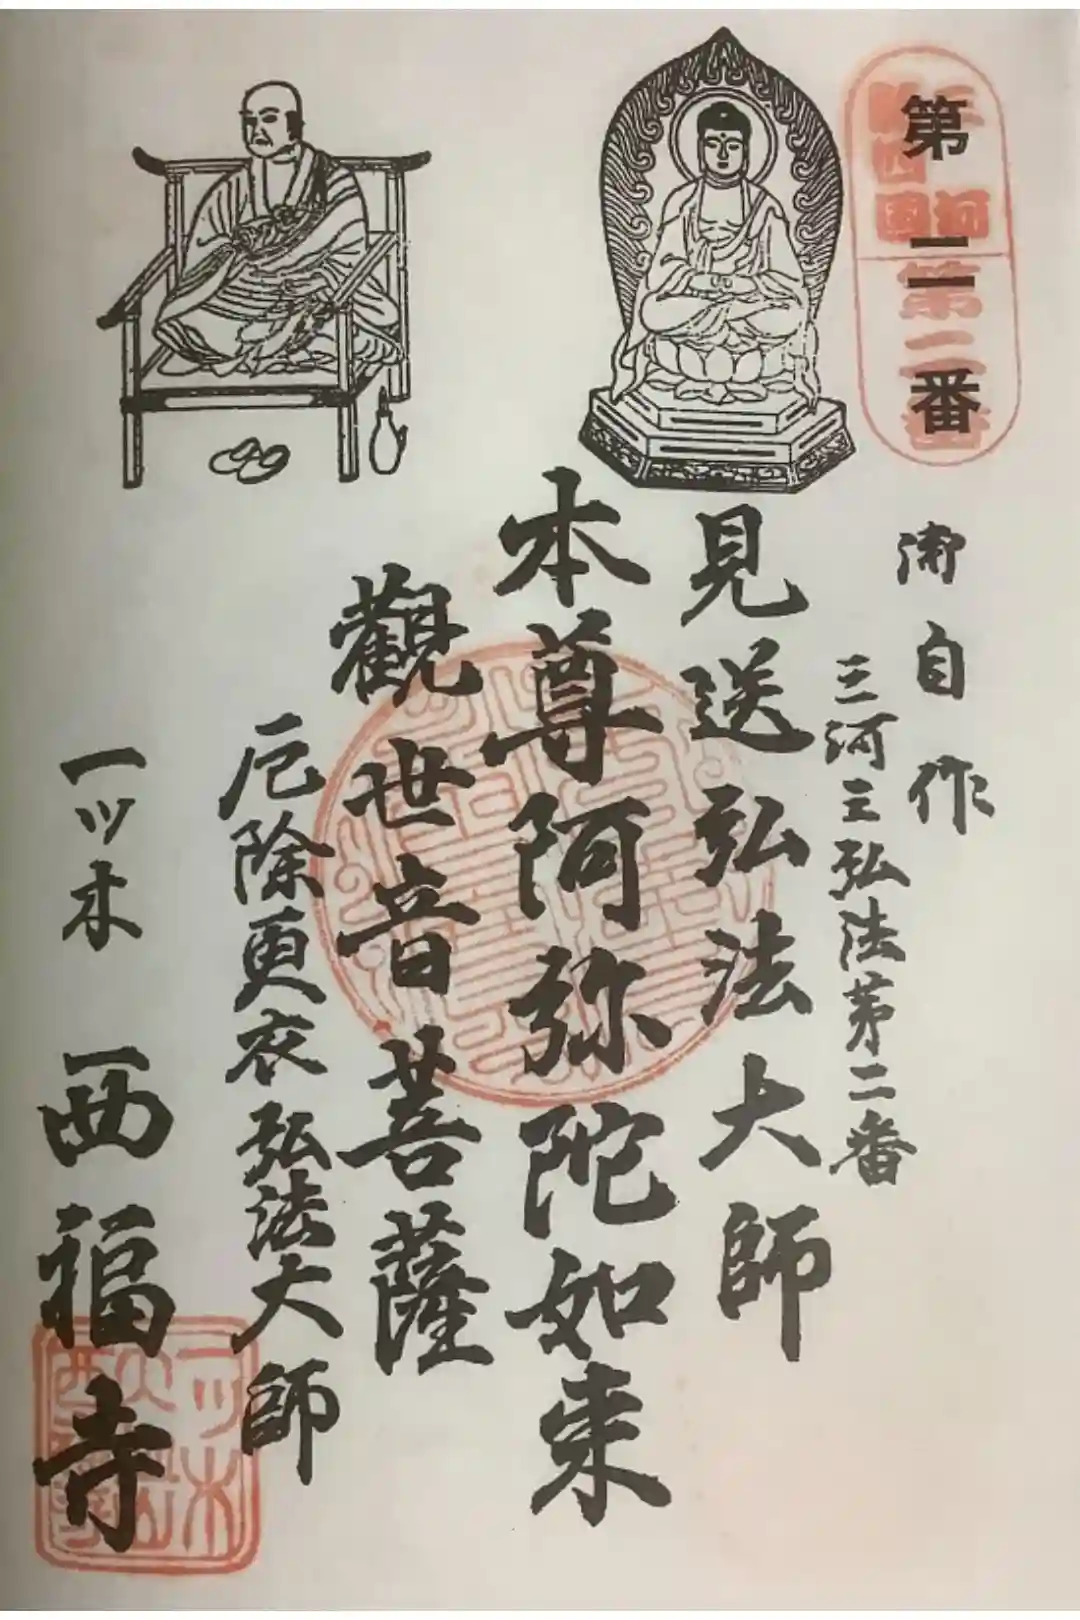 第二番
三河
新四国
第二番
御自作
三河三弘法第二番
見送弘法大師
本尊阿弥陀如来
觀世音菩薩
厄除更衣弘法大師
一ツ木 西福寺
一ツ木